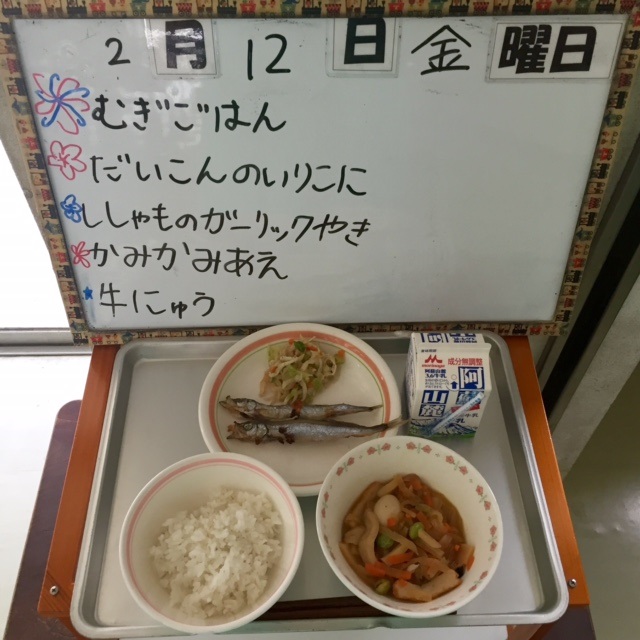 2月12日金曜日
むぎごはん
だいこんのいりこに
ししゃものガーリックやき
かみかみあえ
牛にゅう
成分無調整